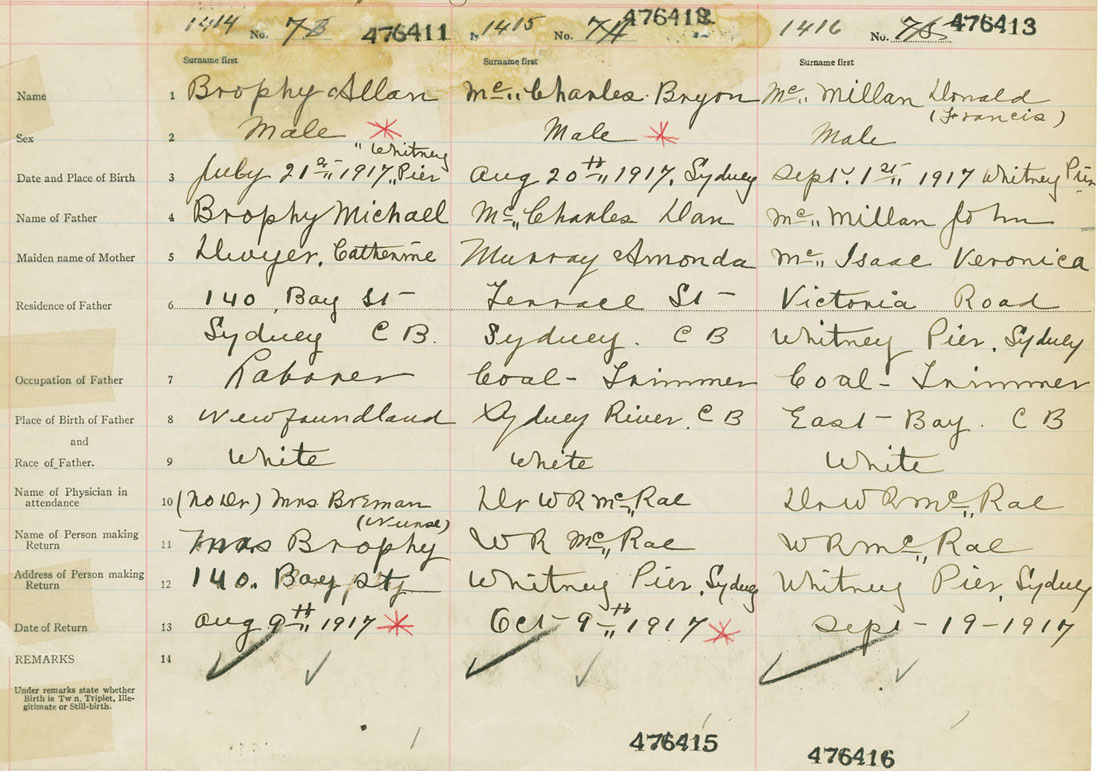 1414 No. 73 476411 1415 No. 74 476412 1416 No. 75 476413
Surname first Surname first Surname first
Name 1 Brophy Allan Mc,, Charles Bryon Mc,, Millan Donald
(Francis)
Sex 2 Male Male Male
"Whitney
Date and Place of Birth 3 July 21st,, 1917,, Pier Aug 20th,, 1917, Sydney Sept. 1st,, 1917 Whitney Pier
Name of Father 4 Brophy Michael Mc,, Charles Dan Mc,, Millan John
Maiden name of Mother 5 Dwyer, Catherine Murray Amonda Mc,, Isaac Veronica
Residence of Father 6 140 Bay St Terrace St Victoria Road
Sydney C B. Sydney. C B Whitney Pier, Sydney
Occupation of Father 7 Laborer Coal-Trimmer Coal-Trimmer
Place of Birth of Father 8 Newfoundland Sydney River, C B East-Bay. C B
and
Race of Father. 9 White White White
Name of Physician in
attendance 10 (No Dr) Mrs Breman Dr W R Mc,, Rae Dr W R Mc,, Rae
(Nurse)
Name of Person making
Return 11 Mrs Brophy W R Mc,, Rae W R Mc,, Rae
Address of Person making
Return 12 140. Bay Whitney Pier, Sydney Whitney Pier, Sydney
Date of Return 13 Aug 9th,, 1917 Oct-9th,, 1917 Sept-19-1917
REMARKS 14
Under remarks state whether
Birth is Tw n, Triplet, Ille-
gitimate or Still-birth.
476415 476416